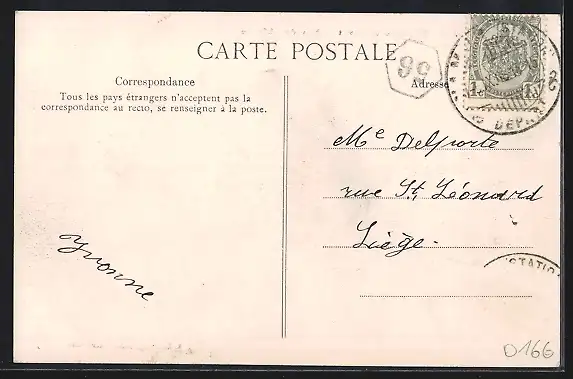 CARTE POSTALE
Correspondance
Tous les pays étrangers n'acceptent pas la
correspondance au recto, se renseigner à la poste.
Yvonne
56
Adresse
1c
DEPART
Me Delporte
rue St Léonard
Liège.
STATION
D166